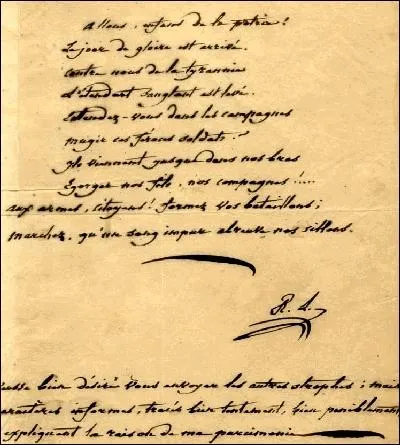 allons, enfans de la patrie!
Le jour de gloire est arrivé.
contre nous de la tyrannie
L'étendart sanglant est levé.
Entendez-vous dans les campagnes
mugir ces féroces soldats?
Ils viennent jusque dans nos bras
Egorger nos fils, nos compagnes!....
aux armes, citoyens! formez vos bataillons;
marchez, qu'un sang impur abreuve nos sillons.
R. L.
eusse bien désiré vous envoyer les autres strophes; mais
aractères informes, tracés bien lentement, bien péniblement
expliquent la raison de ma parcimonie